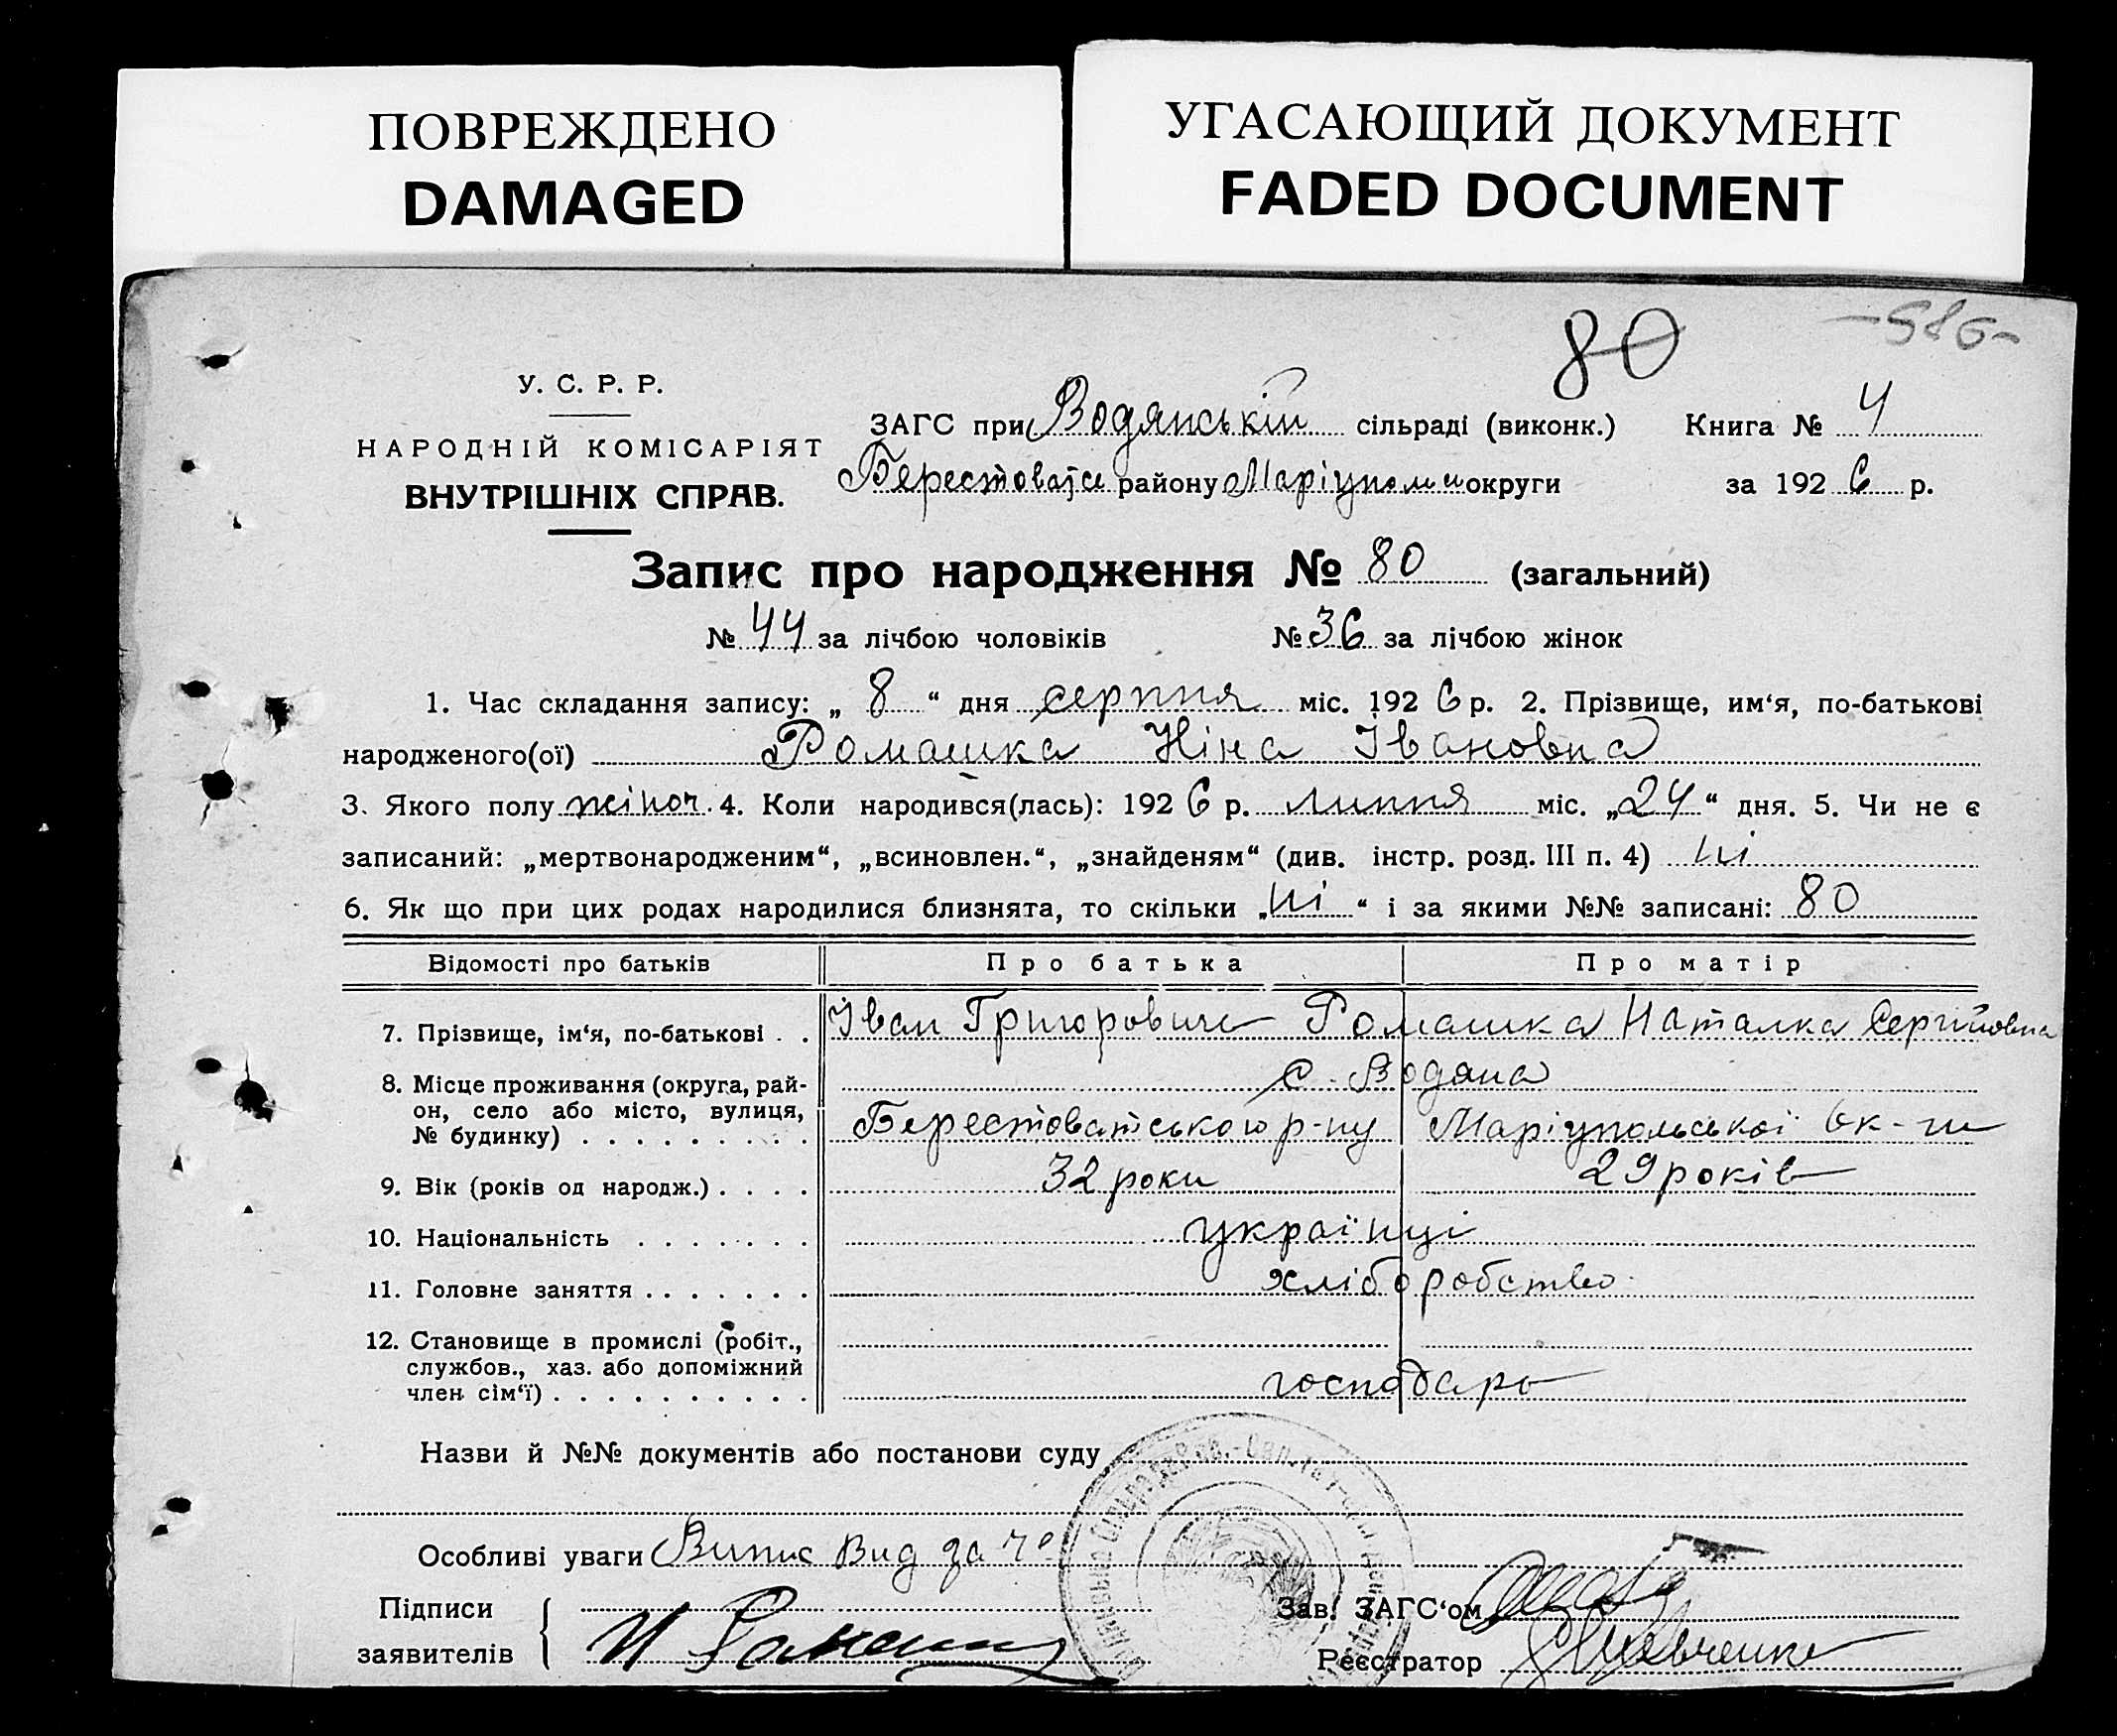 ПОВРЕЖДЕНО
DAMAGED
УГАСАЮЩИЙ ДОКУМЕНТ
FADED DOCUMENT
80
-586-
У. С. Р. Р.
НАРОДНІЙ КОМІСАРІЯТ
ВНУТРІШНІХ СПРАВ.
ЗАГС при Водянській сільраді (виконк.) Книга № 4
району Маріупольск округи за 1926 р.
Запис про народження № 80 (загальний)
№ 44 за лічбою чоловіків № 36 за лічбою жінок
1. Час складання запису: „ 8 “ дня серпня міс. 1926 р. 2. Прізвище, им‘я, по-батькові
народженого(ої) Ромашка Ніна Івановна
3. Якого полу жіноч. 4. Коли народився(лась): 1926 р. липня міс. „24“ дня. 5. Чи не є
записаний: „мертвонародженим“, „всиновлен.“, „знайденям“ (див. інстр. розд. III п. 4) ні
6. Як що при цих родах народилися близнята, то скільки „ні“ і за якими №№ записані: 80
Відомості про батьків Про батька Про матір
7. Прізвище, ім‘я, по-батькові . . Іван Григорович Ромашка Наталка Сергійовна
8. Місце проживання (округа, рай-
он, село або місто, вулиця,
№ будинку) . . . . . . . . .
с. Водяна
Берестоватського р-ну Маріупольської Ок-ги
9. Вік (років од народж.) . . . . 32 роки 29 років
10. Національність . . . . . . . українці
11. Головне заняття . . . . . . . хліборобство
12. Становище в промислі (робіт.,
службов., хаз. або допоміжний
член сім‘ї) . . . . . . . . . .
господарь
Назви й №№ документів або постанови суду
Особливі уваги Випис Вид за ч°
Підписи
заявителів
И Ромашк
Зав. ЗАГС‘ом
Реєстратор Шевченко